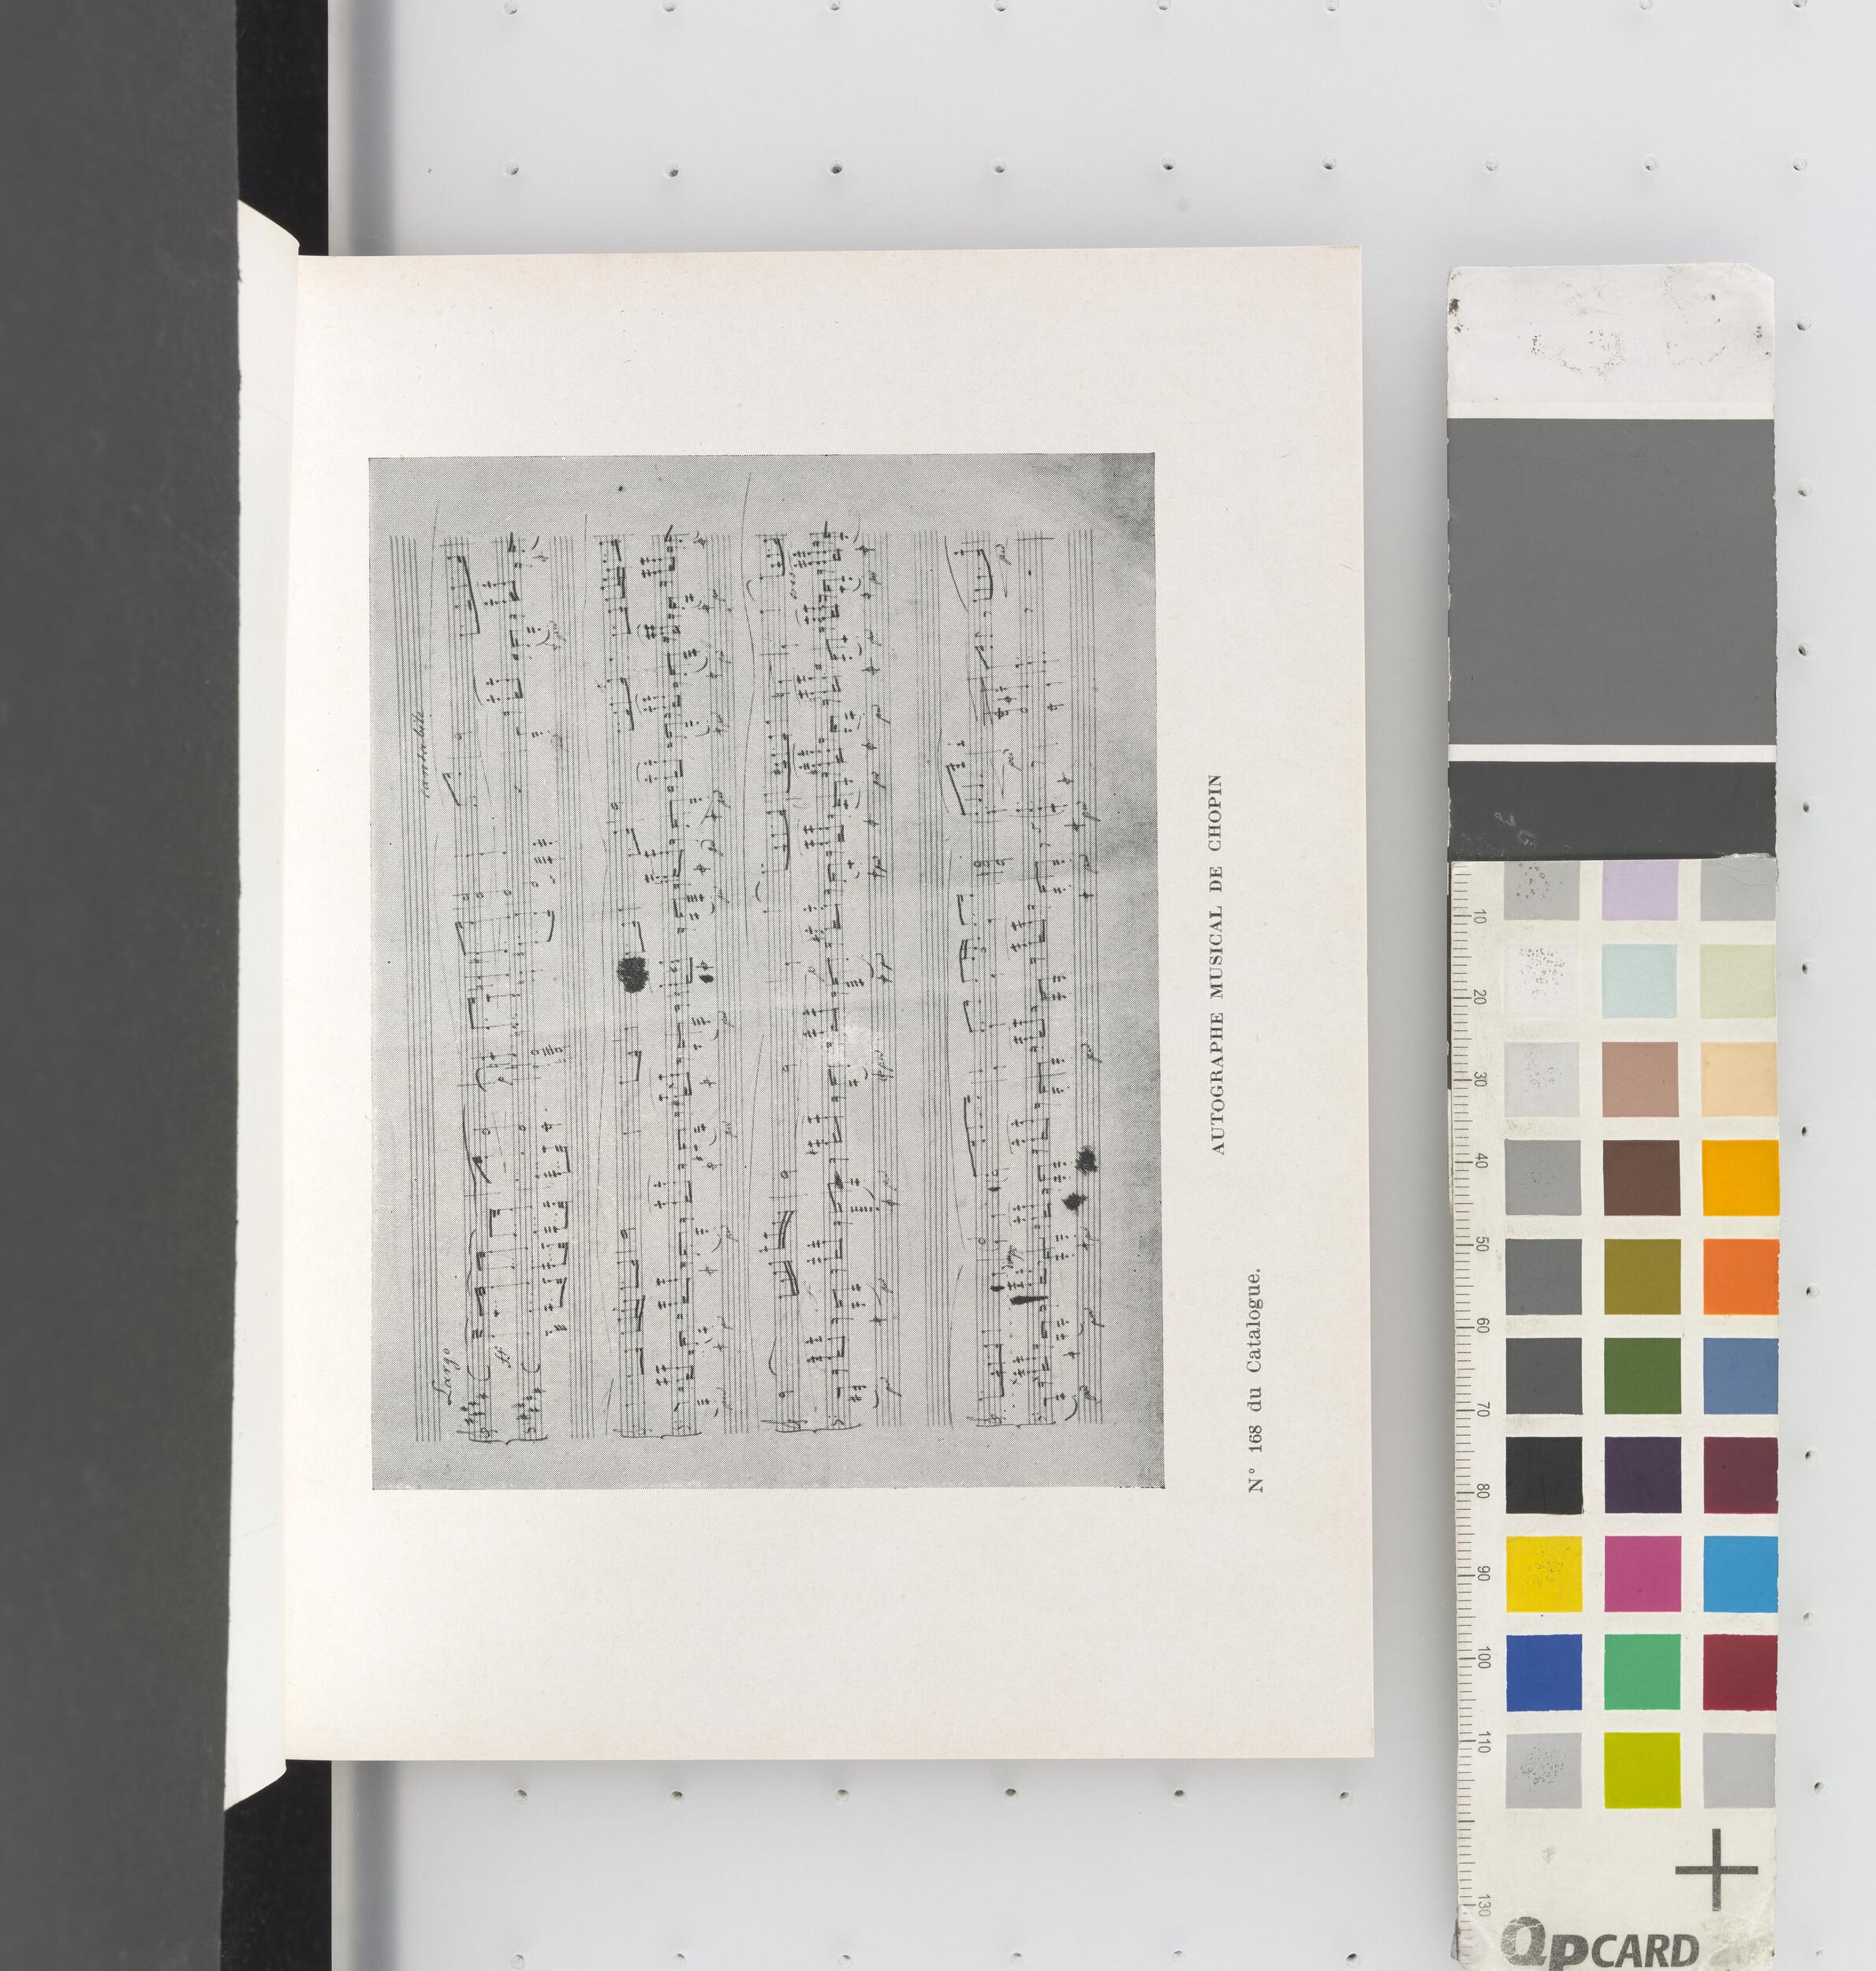 Largo
cantabile
AUTOGRAPHE MUSICAL DE CHOPIN
N° 168 du Catalogue.
10
20
30
40
50
60
70
80
90
100
110
130
QPCARD